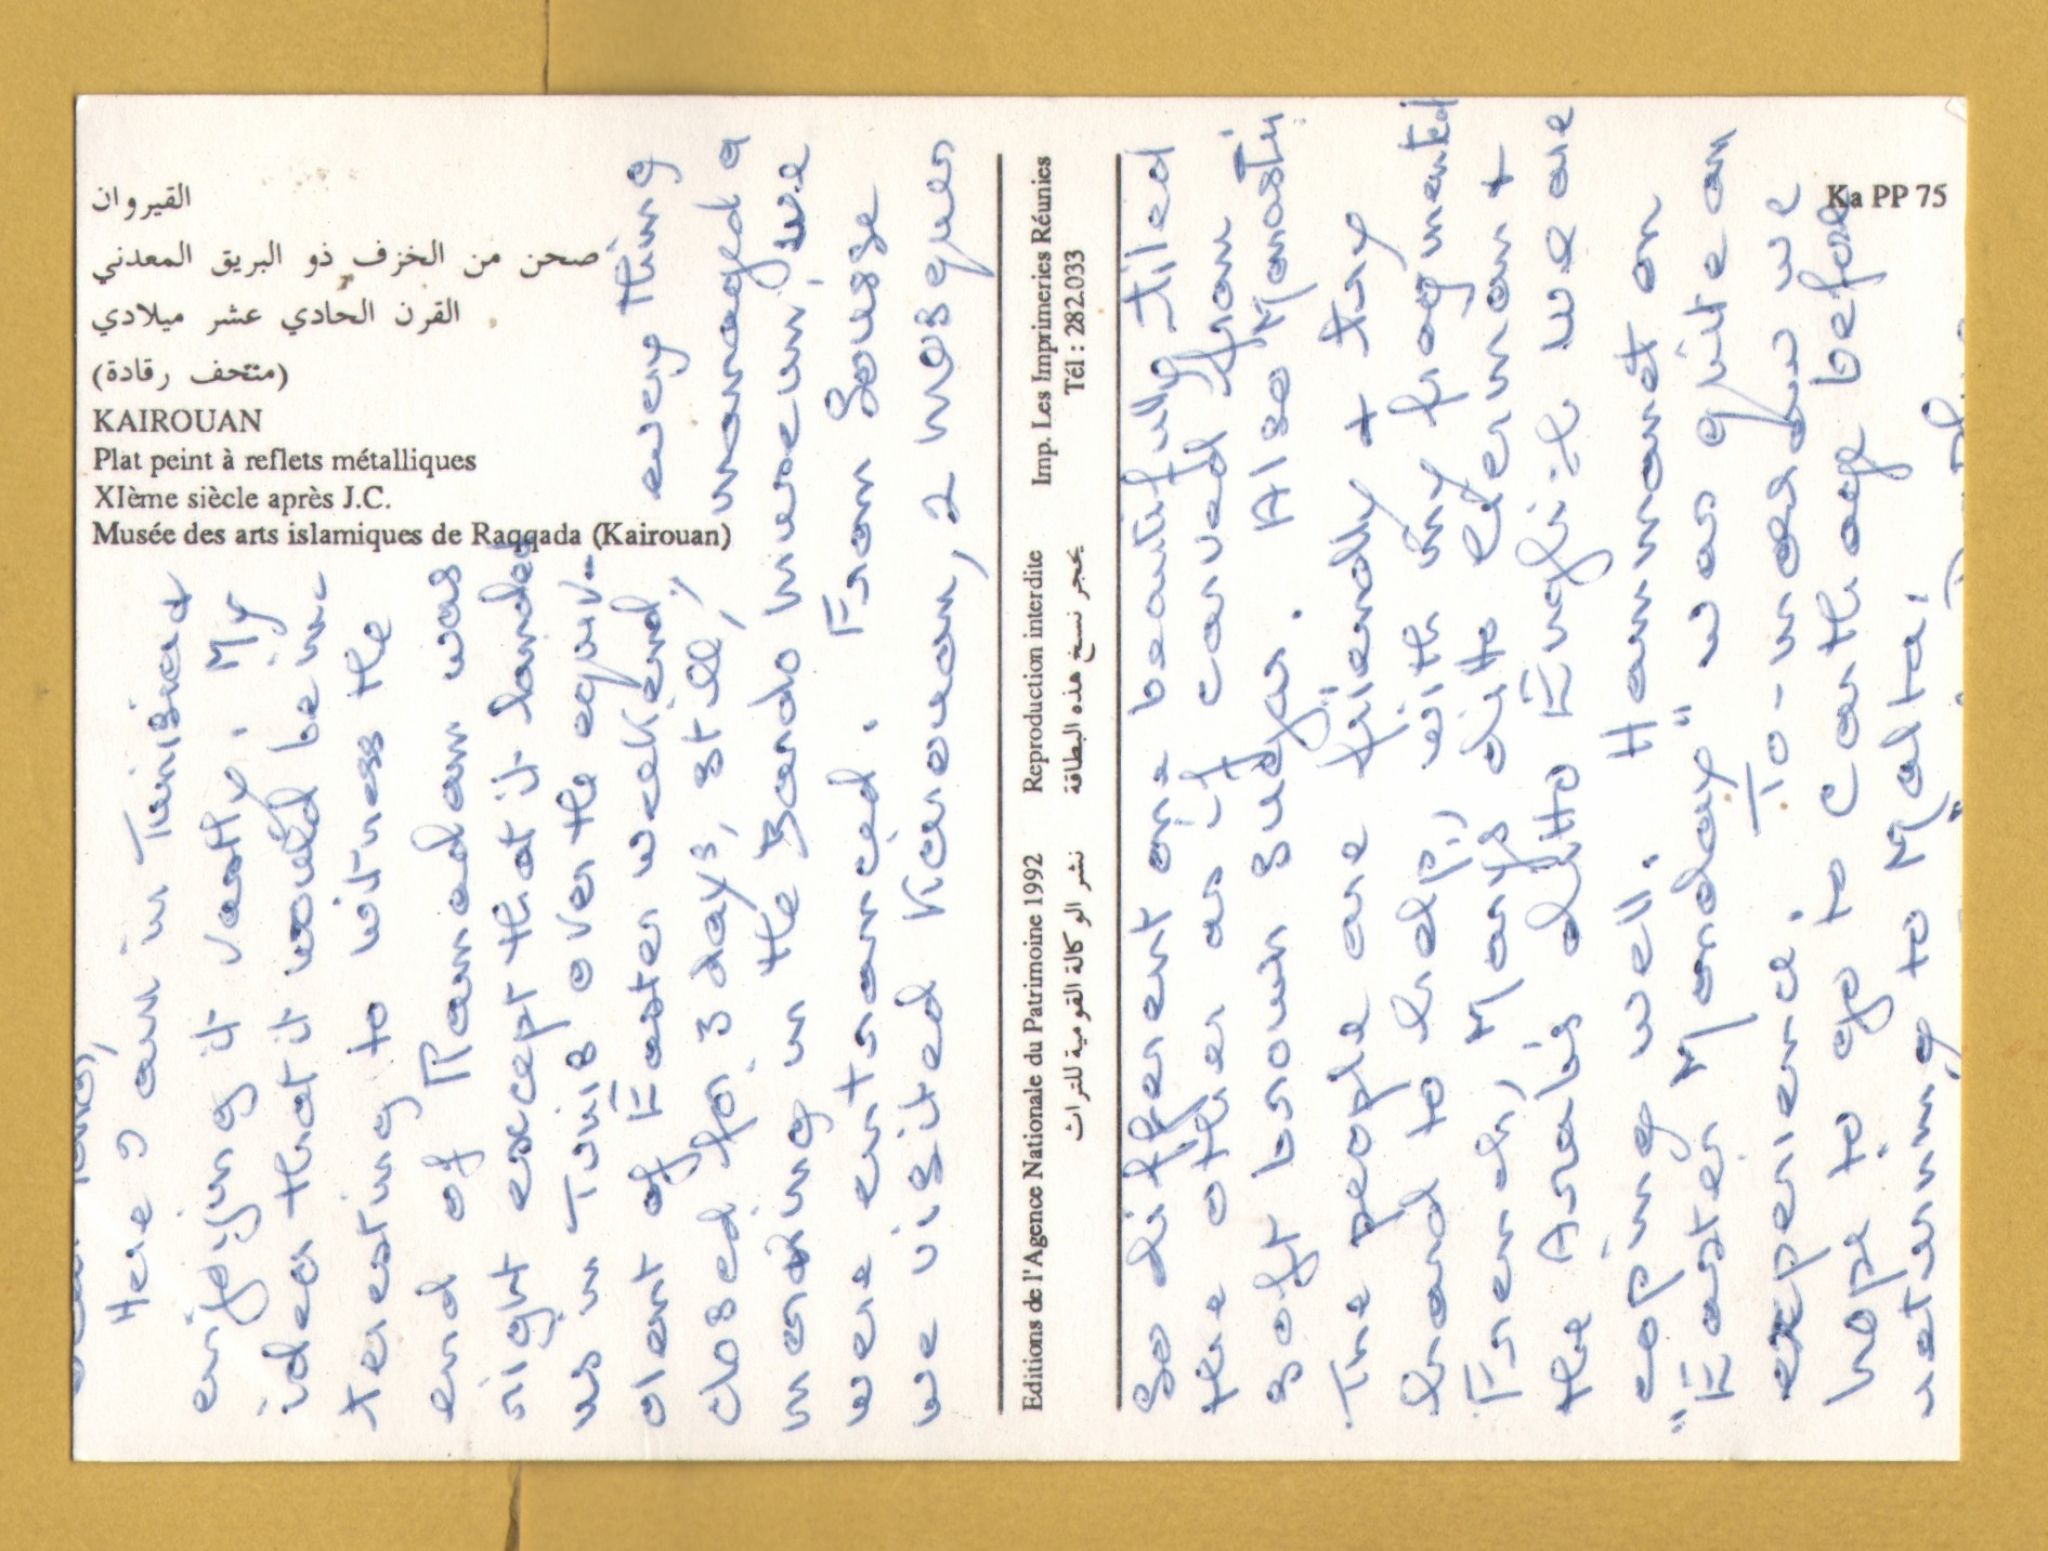 القيروان
صحن من الخزف ذو البريق المعدني
القرن الحادي عشر ميلادي
(متحف رقادة)
KAIROUAN
Plat peint à reflets métalliques
XIème siècle après J.C.
Musée des arts islamiques de Raqqada (Kairouan)
Here I am in Tunisia &
enjoying it vastly. My
idea that it would be in-
teresting to witness the
end of Ramadam was
right except that it landed
us in Tunis over the equiv-
alent of Easter weekend, everything
closed for 3 days, still, managed a
morning in the Bardo museum, we
were entranced. From Sousse
we visited Kairouan, 2 mosques
Editions de l'Agence Nationale du Patrimoine 1992 Reproduction interdite Imp. Les Imprimeries Réunies
نشر الوكالة القومية للتراث يحجر نسخ هذه البطاقة Tél : 282.033
so different one beautifully tiled
the other as if carved from
soft brown sugar. Also Monastir.
The people are friendly & try
hard to help, with my fragmented
French, Marys ditto German &
the Arabs ditto English we are
coping well. Hammamet on
"Easter Monday" was quite an
experience. To-morrow we
hope to go to Carthage before
returning to Malta.
Ka PP 75